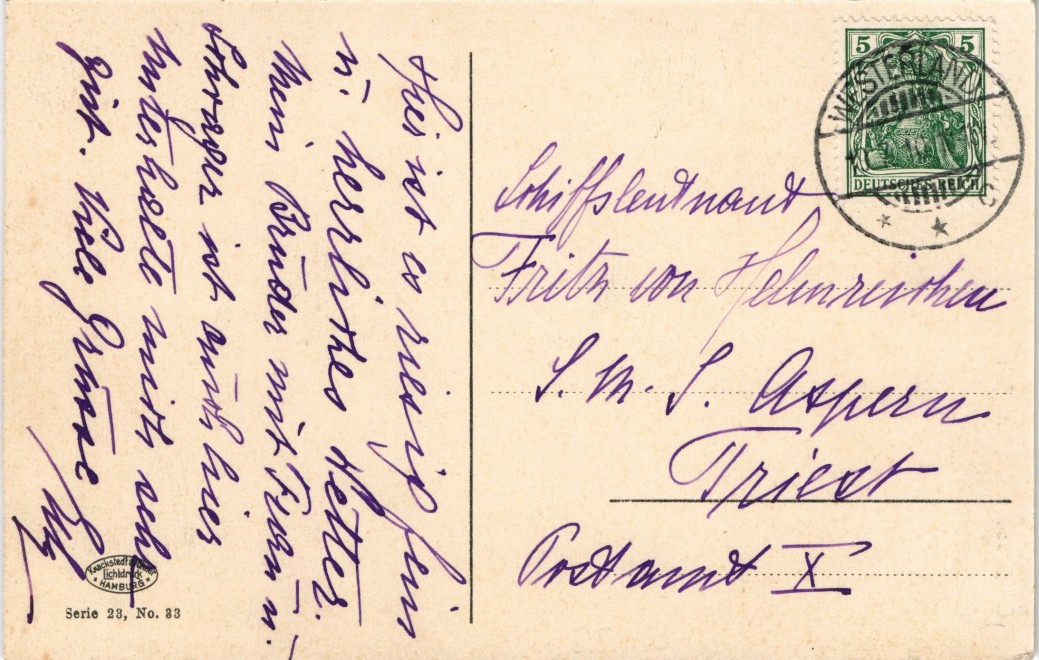 Hier ist es riesig fein
u. herrliches Wetter.
Mein Bruder mit Frau u.
Schwager ist auch hier
unterhalte mich sehr
gut. Viele Grüsse
5 5
DEUTSCHES REICH
WESTERLAND
Schiffsleutnant
Fritz von Helmreichen
S. M. S. Aspern
Triest
Postamt X
Knackstedt &
Lichtdruck
HAMBURG
Serie 23, No. 33